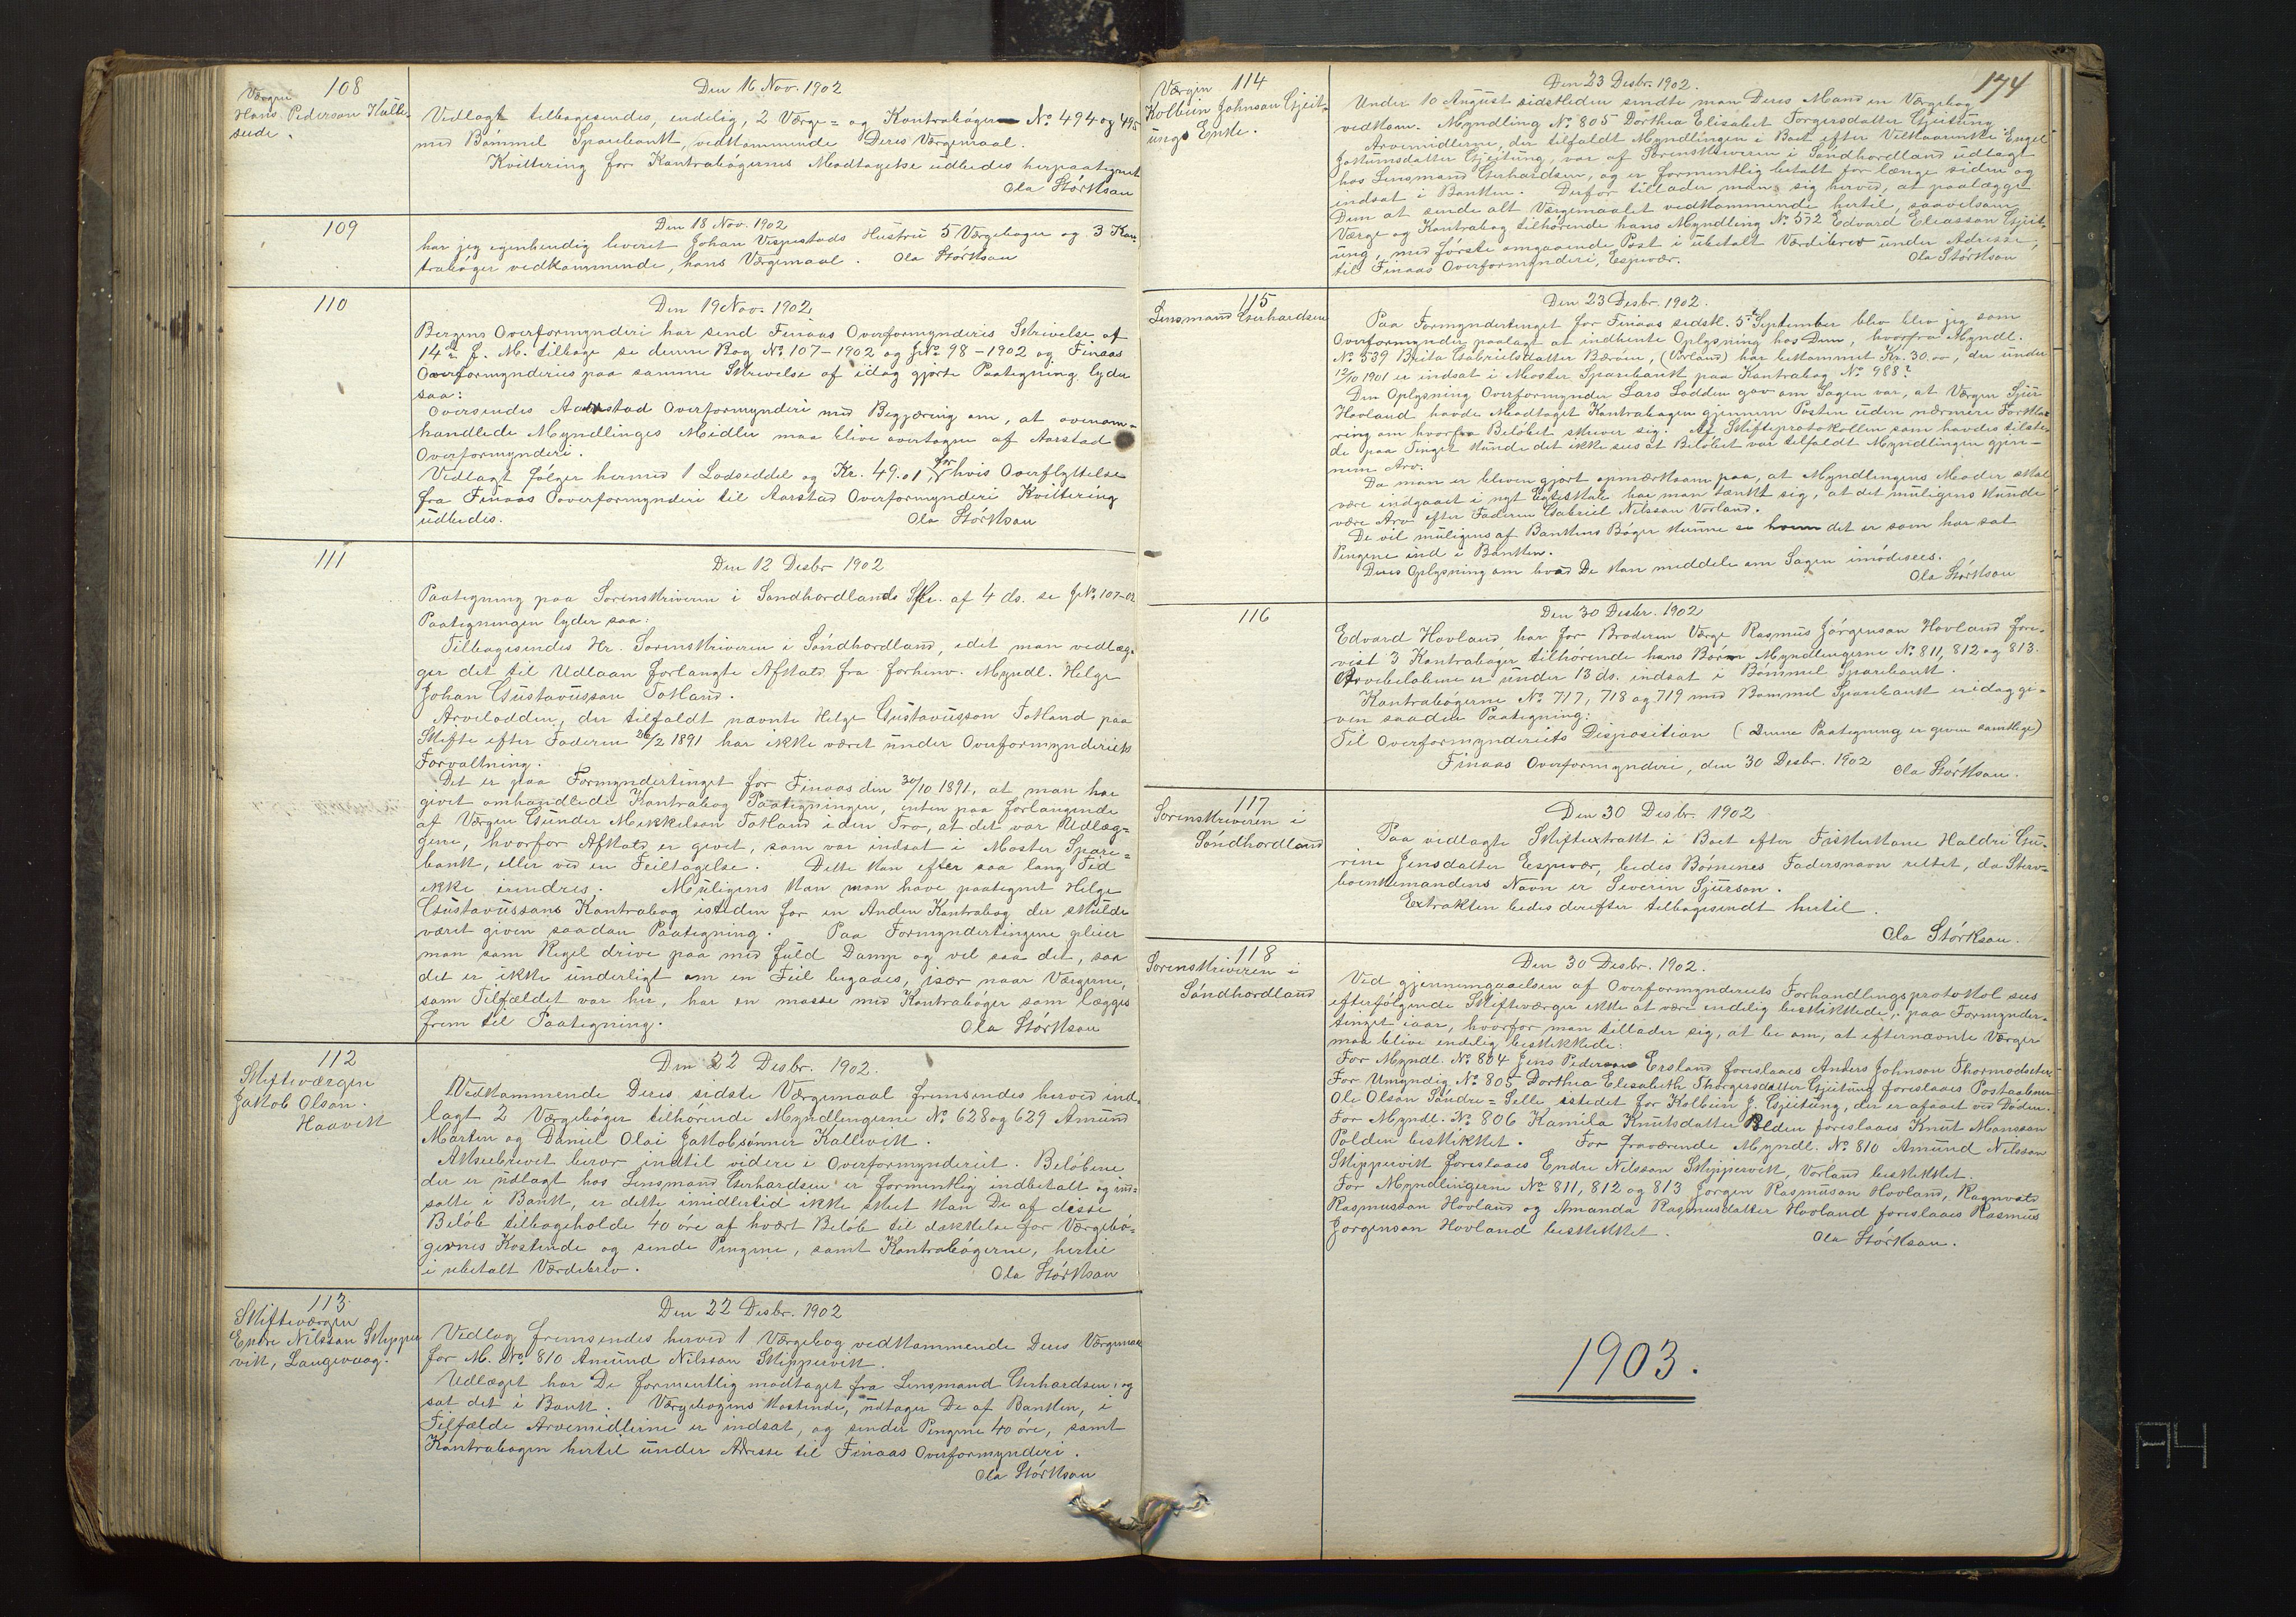 108
Værgen
Hans Pederson Kulle-
seide.
Den 16 Nov. 1902
Vedlagt tilbagesendes, endelig, 2 Værge- og Kontrabøger No. 494 og 495
med Bømmel Sparebank, vedkommende Deres Værgemaal.
Kvittering for Kontrabøgernes Modtagelse udbedes herpaategnet
Ola Størkson
109
Den 18 Nov. 1902
har jeg egenhendig leveret Johan Vespestads Hustru 5 Værgebøger og 3 Kon-
trabøger vedkommende, hans Værgemaal. Ola Størkson
110
Den 19 Nov. 1902
Bergens Overformynderi har send Finaas Overformynderis Skrivelse af
14de f. M. tilbage se denne Bog No. 107-1902 og JNo. 98-1902 og Finaas
Overformynderies paa samme Skrivelse af idag gjorte Paategning lyder
saa:
Oversendes Aarstad Overformynderi med Begjæring om, at ovenom-
handlede Myndlinges Midler maa blive overtagen af Aarstad
Overformynderi.
Vedlagt følger hermed 1 Lodseddel og Kr. 49.01, for hvis Overflyttelse
fra Finaas Overformynderi til Aarstad Overformynderi Kvittering
udbedes. Ola Størkson
111
Den 12 Desbr 1902
Paategning paa Sorenskriveren i Søndhordlands Skr. af 4 ds. se JNo. 107-02
Paategningen lyder saa:
Tilbagesendes Hr. Sorenskriveren i Søndhordland, idet man vedlæg-
ger det til Udlaan forlangte Afkald fra forhenv. Myndl. Helge
Johan Gustavusson Totland.
Arvelodden, der tilfaldt nævnte Helge Gustavusson Totland paa
Skifte efter Faderen 26/2 1891 har ikke været under Overformynderiets
Forvaltning.
Det er paa Formyndertinget for Finaas den 30/10 1891, at man har
givet omhandlede Kontrabog Paategningen, enten paa forlangende
af Værgen Gunder Mikkelson Totland i den Tro, at det var Udlæg-
gene, hvorfor Afkald er givet, som var indsat i Moster Spare-
bank, eller ved en Feiltagelse. Dette kan efter saa lang Tid
ikke erindres. Muligens kan man have paategnet Helge
Gustavussons Kontrabog isteden for en Anden Kontrabog der skulde
været given saadan Paategning. Paa Formyndertingene pleier
man som Regel drive paa med fuld Damp og vel saa det, saa
det er ikke underligt om en Feil begaaes, især naar Værgerne,
som Tilfældet var her, har en masse med Kontrabøger som lægges
frem til Paategning. Ola Størkson
112
Skifteværgen
Jakob Olson
Haavik
Den 22 Desbr. 1902.
Vedkommende Deres sidste Værgemaal fremsendes herved ind-
lagt 2 Værgebøger tilhørende Myndlingerne No. 628 og 629 Amund
Martin og Daniel Olai Jakobsønner Kallevik.
Afkaebrevet beror indtil videre i Overformynderiet. Beløbene
der er udlagt hos Lensmand Gerhardsen er formentlig indbetalt og ind-
satte i Bank, er dette imidlertid ikke skeet kan De af disse
Beløb tilbageholde 40 øre af hvært Beløb til dækkelse for Værgebø-
gernes Kostende og sende Pengene, samt Kontrabøgerne, hertil
i ubetalt Værdibrev. Ola Størkson
113
Skifteværgen
Endre Nilsson Skipper
vik, Langevaag.
Den 22 Desbr. 1902
Vedlag fremsendes herved 1 Værgebog vedkommende Deres Værgemaal
for M. No. 810 Amund Nilsson Skippervik.
Udlæget har De formentlig modtaget fra Lensmand Gerhardsen og
sat det i Bank. Værgebogens kostende, udtager De af Banken, i
Tilfælde Arvemidlerne er indsat, og sender Pengene 40 øre, samt
Kontrabogen hertil under Adresse til Finaas Overformynderi.
Ola Størkson
174
114
Værgen
Kolbein Johnson Gjeit-
ungs Enke.
Den 23 Desbr. 1902.
Under 10 August sidstleden sendte man Deres Mand en Værgebog
vedkom. Myndling No. 805 Dorthea Elisabet Torgersdatter Gjeitung
Arvemidlerne, der tilfaldt Myndlingen i Boet efter Vilkaarsenke Engel
Jokumsdatter Gjeitung, var af Sorenskriveren i Søndhordland udlagt
hos Lensmand Gerhardsen, og er formentlig betalt for længe siden og
indsat i Banken. Derfor tillader man sig herved, at paalægge
Dem at sende alt Værgemaalet vedkommende hertil, saavelsom
Værge og Kontrabog tilhørende hans Myndling No. 592 Edvard Eliasson Gjeit-
ung, med første omgaaende Post i ubetalt Værdibrev under Adresse,
til Finaas Overformynderi, Espevær. Ola Størkson
115
Lensmand Gerhardsen
Den 23 Desbr. 1902.
Paa Formyndertinget for Finaas sidstl. 5te September blev blev jeg som
Overformynder paalagt at indhente Oplysning hos Dem, hvorfra Myndl.
No. 539 Brita Gabrielsdatter Bærøen, (Vorland) har bekommet Kr. 30.00, der under
12/10 1901 er indsat i Moster Sparebank paa Kontrabog No. 988?
Den Oplysning Overformynder Lars Lodden gav om Sagen var, at Værgen Sjur
Hovland havde Modtaget Kontrabogen gjennem Posten uden nærmere Forkla-
ring om hvorfra Beløbet skriver sig. Af Skifteprotokollen som havdes tilste-
de paa Tinget kunde det ikke sees at Beløbet var tilfaldt Myndlingen gjen-
nem Arv.
Da man er bleven gjort opmærksom paa, at Myndlingens Moder skal
være indgaaet i nyt Egteskab har man tænkt sig, at det muligens kunde
være Arv efter Faderen Gabriel Nilsson Vorland.
De vil muligens af Bankens Bøger kunne se hvem det er som har sat
Pengene ind i Banken.
Deres Oplysning om hvad De kan meddele om Sagen imødesees.
Ola Størkson
116
Den 30 Desbr. 1902
Edvard Hovland har for Broderen Værge Rasmus Jørgenson Hovland fore-
vist 3 Kontrabøger tilhørende hans Børn Myndlingerne No. 811, 812 og 813.
Arvebeløbene er under 13 ds. indsat i Bømmel Sparebank.
Kontrabøgerne No. 717, 718 og 719 med Bømmel Sparebank er idag gi-
ven saaden Paategning:
Til Overformynderiets Disposition (Denne Paategning er given samtlige)
Finaas Overformynderi, den 30 Desbr. 1902 Ola Størkson.
117
Sorenskriveren i
Søndhordland
Den 30 Desbr 1902
Paa vedlagte Skifteextrakt i Boet efter Fiskerkone Haldri Gu-
rine Jensdatter Espevær, bedes Børnenes Fadersnavn rettet, da Sterv-
boenkemandens Navn er Severin Sjurson.
Extrakten bedes derefter tilbagesendt hertil.
Ola Størkson.
118
Sorenskriveren i
Søndhordland
Den 30 Desbr. 1902.
Ved gjennemgaaelsen af Overformynderiets Forhandlingsprotokol sees
efterfølgende Skifteværger ikke at være endelig beskikkede, paa Formynder-
tinget iaar, hvorfor man tillader sig, at be om, at efternævnte Værger
maa blive endelig beskikkede:
For Myndl. No. 804 Jens Pederson Ersland foreslaaes Anders Johnson Thormodsæter
For Umyndig No. 805 Dorthea Elisabeth Thorgersdatter Gjeitung foreslaaes Postaabner
Ole Olson Søndre-Selle istedet for Kolbein J. Gjeitung, der er afgaaet ved Døden.
For Myndl. No. 806 Kamila Knutsdatter Polden foreslaaes Knut Monsson
Polden beskikket. For fraværende Myndl. No. 810 Amund Nilsson
Skippervik foreslaaes Endre Nilsson Skippervik, Vorland beskikket.
For Myndlingerne No. 811, 812 og 813 Jørgen Rasmusson Hovland, Ragnvald
Rasmusson Hovland og Amanda Rasmusdatter Hovland foreslaaes Rasmus
Jørgenson Hovland beskikket. Ola Størkson.
1903.
A4